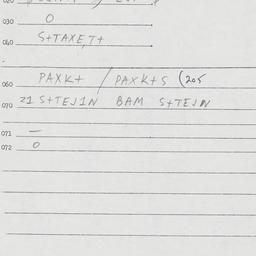 030 O
040 S+TAXE,T+
060 PAXK+ / PAXK+S (205
070 21 S+TEJIN BAM S+TEJN
071 —
072 O